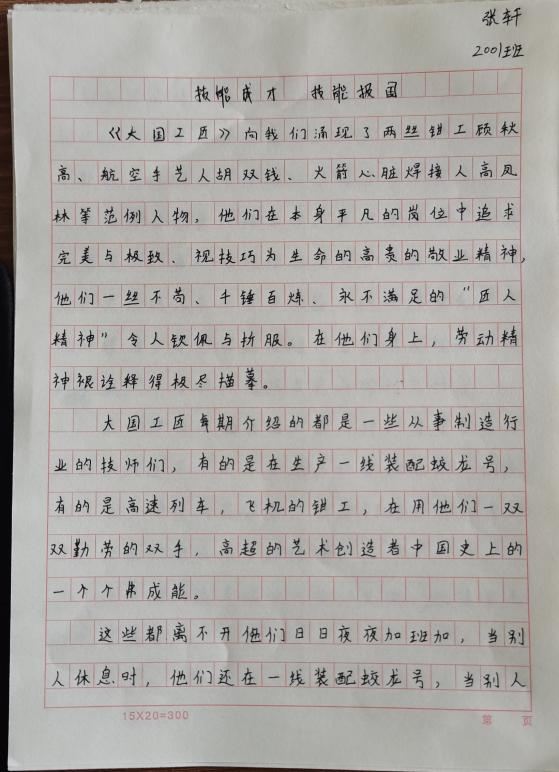 张轩
2001班
技能成才 技能报国
《大国工匠》向我们涌现了两丝钳工顾秋
高、航空手艺人胡双钱、火箭心脏焊接人高凤
林等范例人物，他们在本身平凡的岗位中追求
完美与极致、视技巧为生命的高贵的敬业精神，
他们一丝不苟、千锤百炼、永不满足的“匠人
精神”令人钦佩与折服。在他们身上，劳动精
神被诠释得极尽描摹。
大国工匠每期介绍的都是一些从事制造行
业的技师们，有的是在生产一线装配蛟龙号，
有的是高速列车，飞机的钳工，在用他们一双
双勤劳的双手，高超的艺术创造者中国史上的
一个个 成能。
这些都离不开他们日日夜夜加班加，当别
人休息时，他们还在一线装配蛟龙号，当别人
15X20=300
第 页